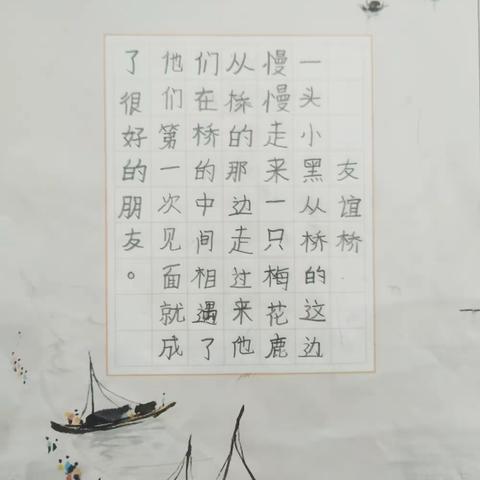 友谊桥
一头小黑从桥的这边
慢慢走来一只梅花鹿
从桥的那边走过来他
们在桥的中间相遇了
他们第一次见面就成
了很好的朋友。